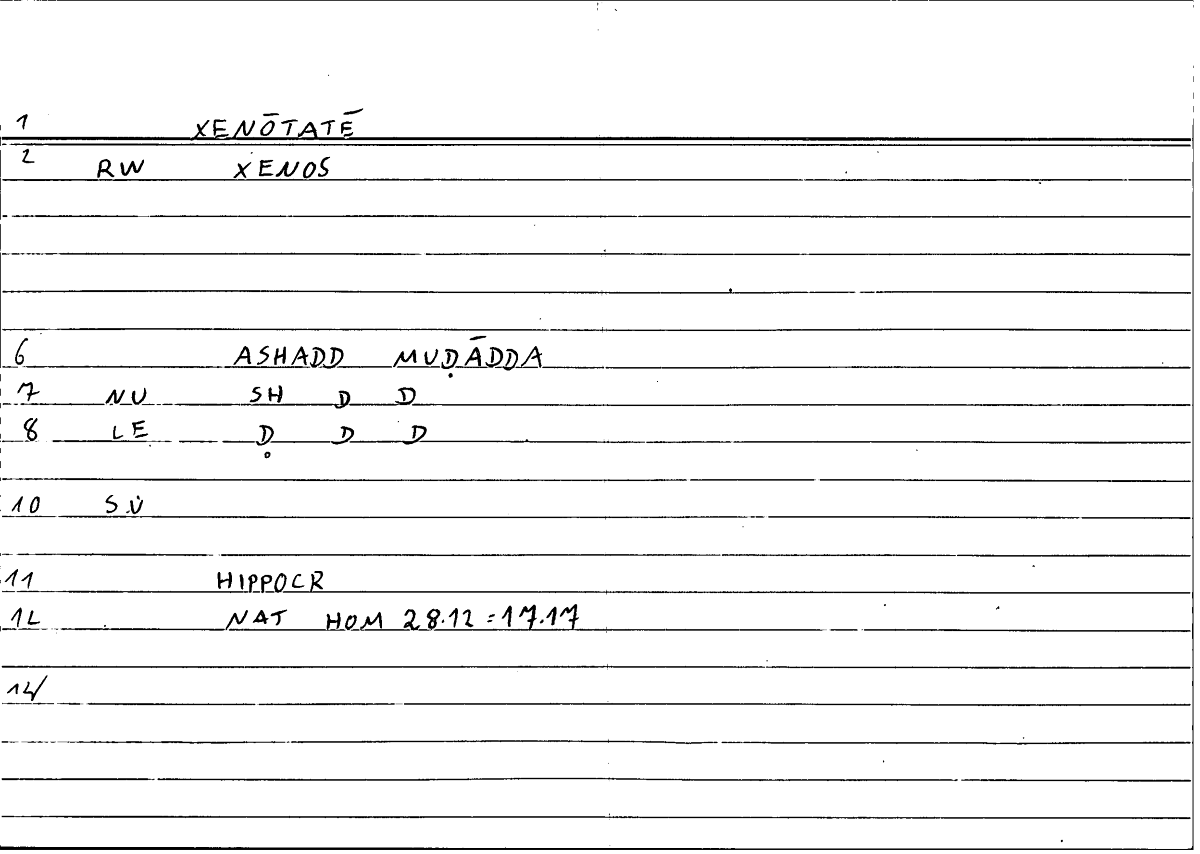 1 XENŌTATĒ
2 RW XENOS
6 ASHADD MUḌĀDDA
7 NU SH D D
8 LE Ḍ D D
10 SÜ
11 HIPPOCR
12 NAT HOM 28.12 = 17.17
14